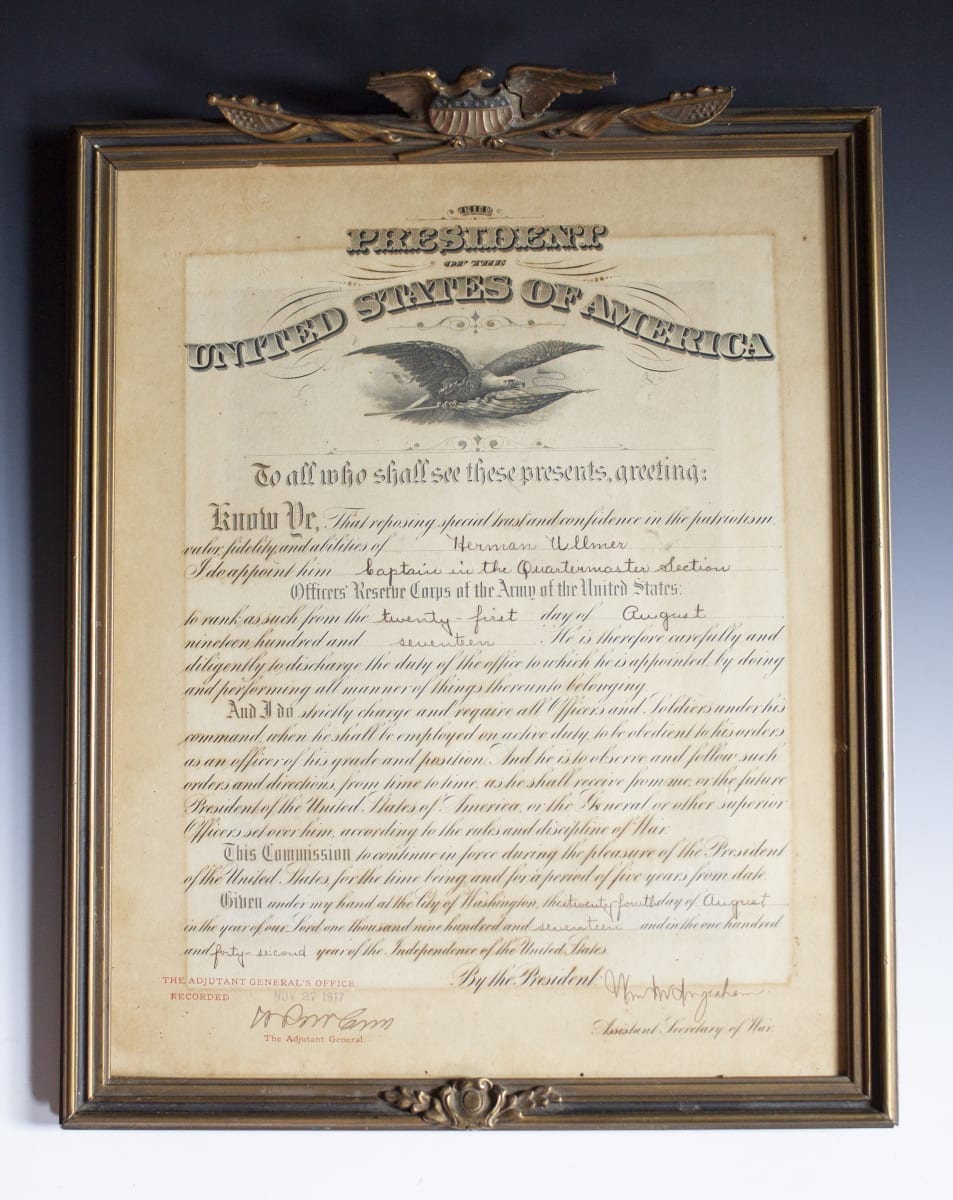 THE
PRESIDENT
OF THE
UNITED STATES OF AMERICA
To all who shall see these presents, greeting:
Know Ye, That reposing special trust and confidence in the patriotism,
valor, fidelity, and abilities of Herman Ullmer
I do appoint him Captain in the Quartermaster Section
Officers' Reserve Corps of the Army of the United States:
to rank as such from the twenty-first day of August
nineteen hundred and seventeen. He is therefore carefully and
diligently to discharge the duty of the office to which he is appointed, by doing
and performing all manner of things thereunto belonging.
And I do strictly charge and require all Officers and Soldiers under his
command, when he shall be employed on active duty, to be obedient to his orders
as an officer of his grade and position. And he is to observe and follow such
orders and directions, from time to time, as he shall receive from me, or the future
President of the United States of America, or the General or other superior
Officers set over him, according to the rules and discipline of War.
This Commission to continue in force during the pleasure of the President
of the United States, for the time being, and for a period of five years from date.
Given under my hand at the City of Washington, this twenty-fourth day of August
in the year of our Lord one thousand nine hundred and seventeen and in the one hundred
and forty-second year of the Independence of the United States.
By the President:
Wm M Ingraham
Assistant Secretary of War.
THE ADJUTANT GENERAL'S OFFICE
RECORDED NOV 27 1917
The Adjutant General.